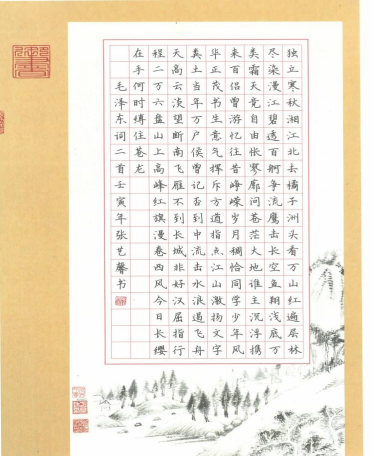 独立寒秋湘江北去橘子洲头看万山红遍层林
尽染漫江碧透百舸争流鹰击长空鱼翔浅底万
类霜天竞自由怅寥廓问苍茫大地谁主沉浮携
来百侣曾游忆往昔峥嵘岁月稠恰同学少年风
华正茂书生意气挥斥方遒指点江山激扬文字
粪土当年万户侯曾记否到中流击水浪遏飞舟
天高云淡望断南飞雁不到长城非好汉屈指行
程二万六盘山上高峰红旗漫卷西风今日长缨
在手何时缚住苍龙
毛泽东词二首壬寅年张艺馨书